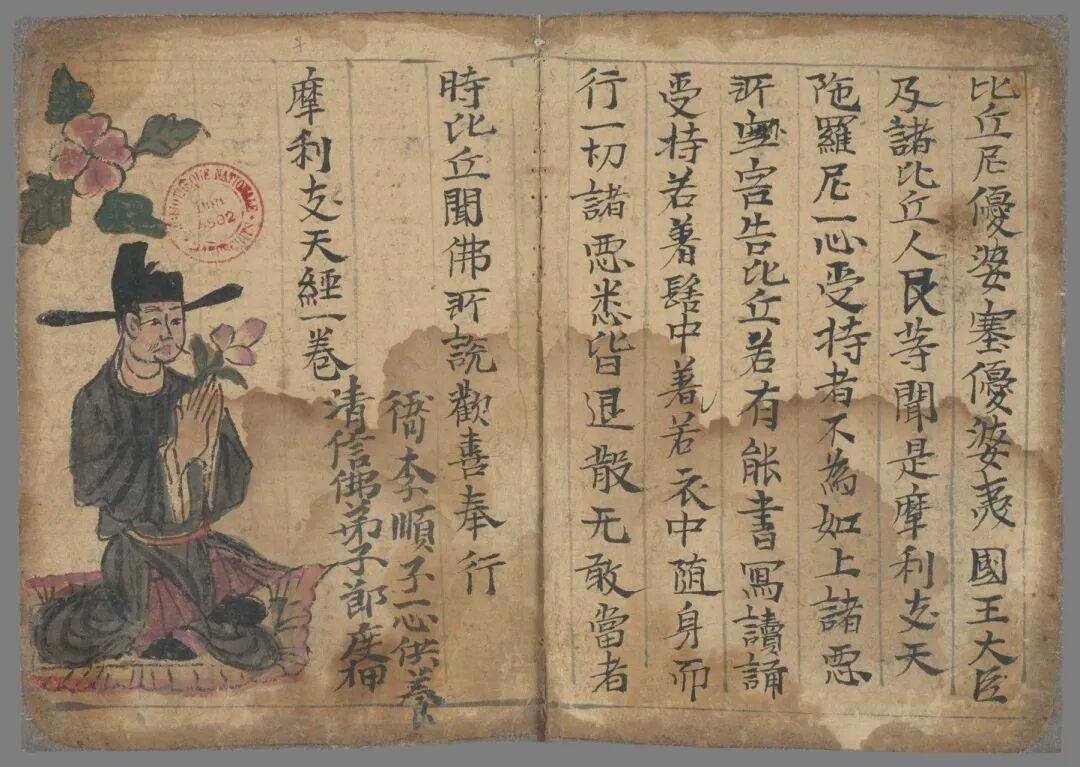 比丘尼優婆塞優婆夷國王大臣
及諸比丘人民等聞是摩利支天
陁羅尼一心受持者不為如上諸惡
所害告比丘若有能書寫讀誦
受持若著髻中著若衣中随身而
行一切諸惡悉皆退散无敢當者
時比丘聞佛所說歡喜奉行
摩利支天經一卷
清信佛弟子節度押
衙李順子一心供養
NATIONALE